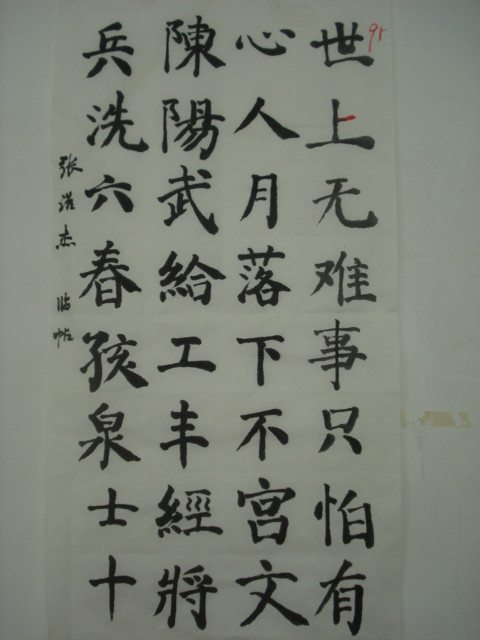 世上无难事只怕有
心人月落下不宫文
陳陽武給工丰經將
兵洗六春孩泉士十
张浩杰 临帖
95